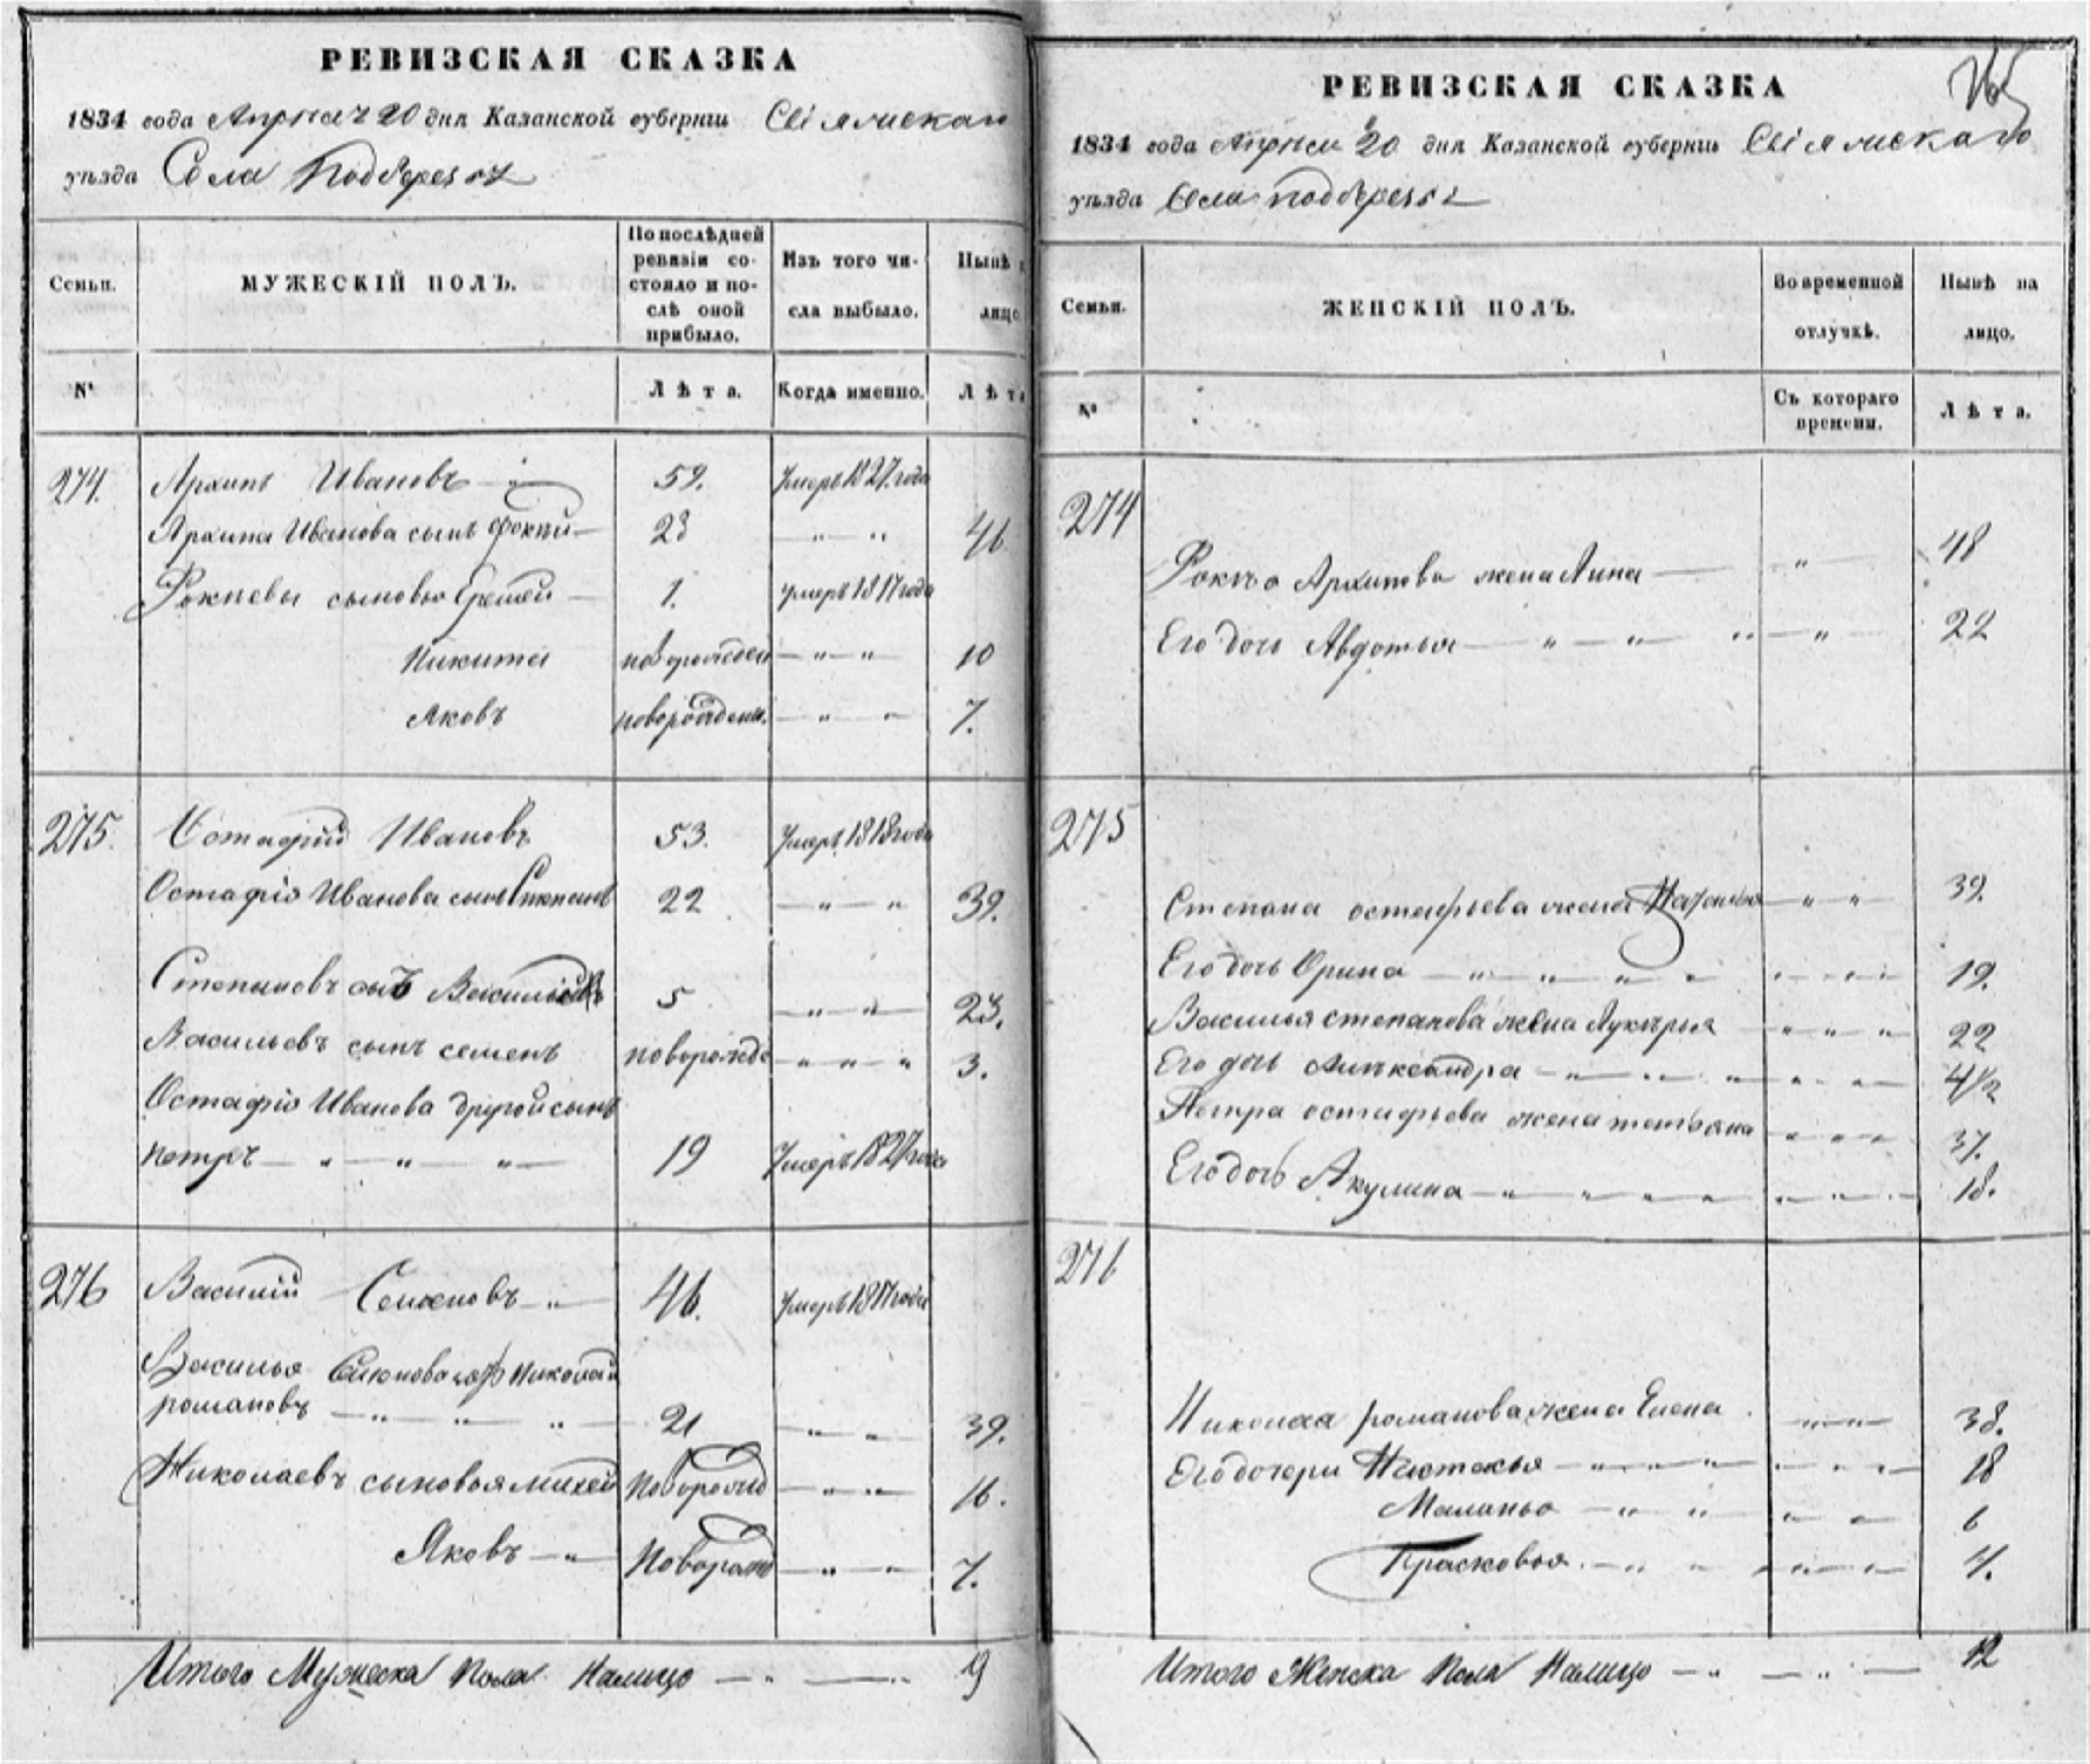 РЕВИЗСКАЯ СКАЗКА
1834 года Апреля 20 дня Казанской губерніи Свіяжскаго
уѣзда Села Подберезья
Семьи. МУЖЕСКІЙ ПОЛЪ. По послѣдней ревизіи состояло и послѣ оной прибыло. Изъ того числа выбыло. Нынѣ лицо
№ Лѣта. Когда именно. Лѣта
274. Архипъ Ивановъ 59. Умеръ 1827 года
Архипа Иванова сынъ Фокѣй 28 46
Фокѣевы сыновья Ермей 1. умеръ 1817 года
Никита новорожденъ 10
Яковъ новорожденъ. 7.
275. Остафій Ивановъ 53. Умеръ 1818 года
Остафія Иванова сынъ Степанъ 22 39.
Степановъ сынъ Василій 5 23.
Васильевъ сынъ семенъ новорожд 3.
Остафія Иванова другой сынъ
петръ 19 Умеръ 1827 года
276 Василий Семеновъ 46. Умеръ 1817 года
Василья Семенова Николай
романовъ 21 39.
Николаевъ сыновья михей Новорожд 16.
Яковъ Новорожд 7.
Итого Мужеска пола Налицо 9
РЕВИЗСКАЯ СКАЗКА
1834 года Апреля 20 дня Казанской губерніи Свіяжскаго
уѣзда Села подберезья
Семьи. ЖЕНСКІЙ ПОЛЪ. Во временной отлучкѣ. Нынѣ на лицо.
№ Съ котораго времени. Лѣта.
274
Фокѣя Архипова жена Анна 48
Его дочь Авдотья 22
275
Степана остафьева жена Наталья 39.
Его дочь Орина 19.
Василья степанова жена Лукерья 22
Его дочь Александра 4½
Петра остафьева жена татьяна 37.
Его дочь Акулина 18.
276
Николая романова жена Елена 38.
Его дочери Настасья 18
Маланья 6
Прасковья 4.
Итого Женска Пола Налицо 12